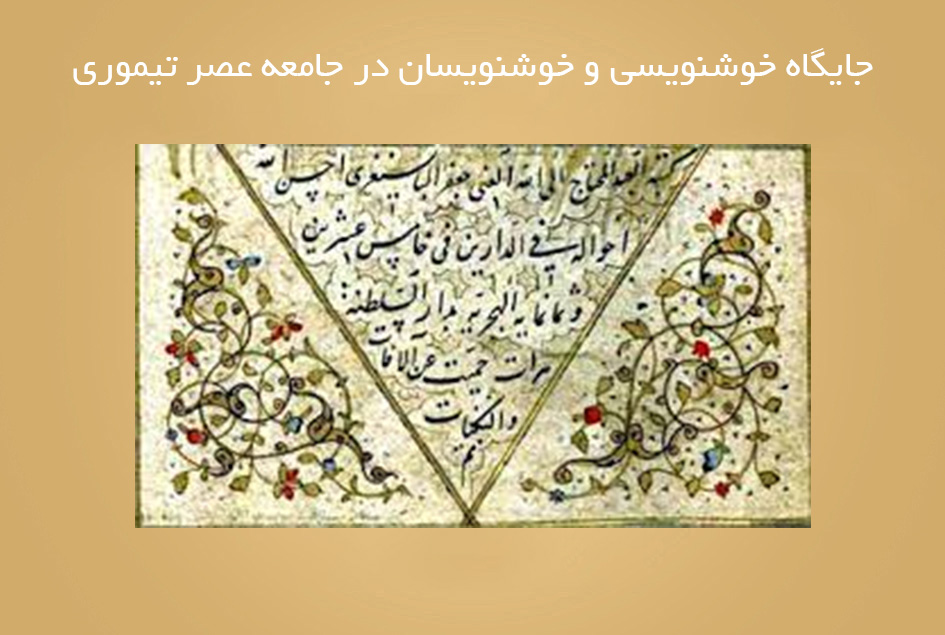 جایگاه خوشنویسی و خوشنویسان در جامعه عصر تیموری
کتبه العبد المحتاج الی الله الغنی جعفر البایسنغری احسن الله
احواله فی الدارین فی خامس عشرین
و ثمانمایه الهجریه بدار السلطنه
هرات حمیت عن الآفات
والنکبات
تم